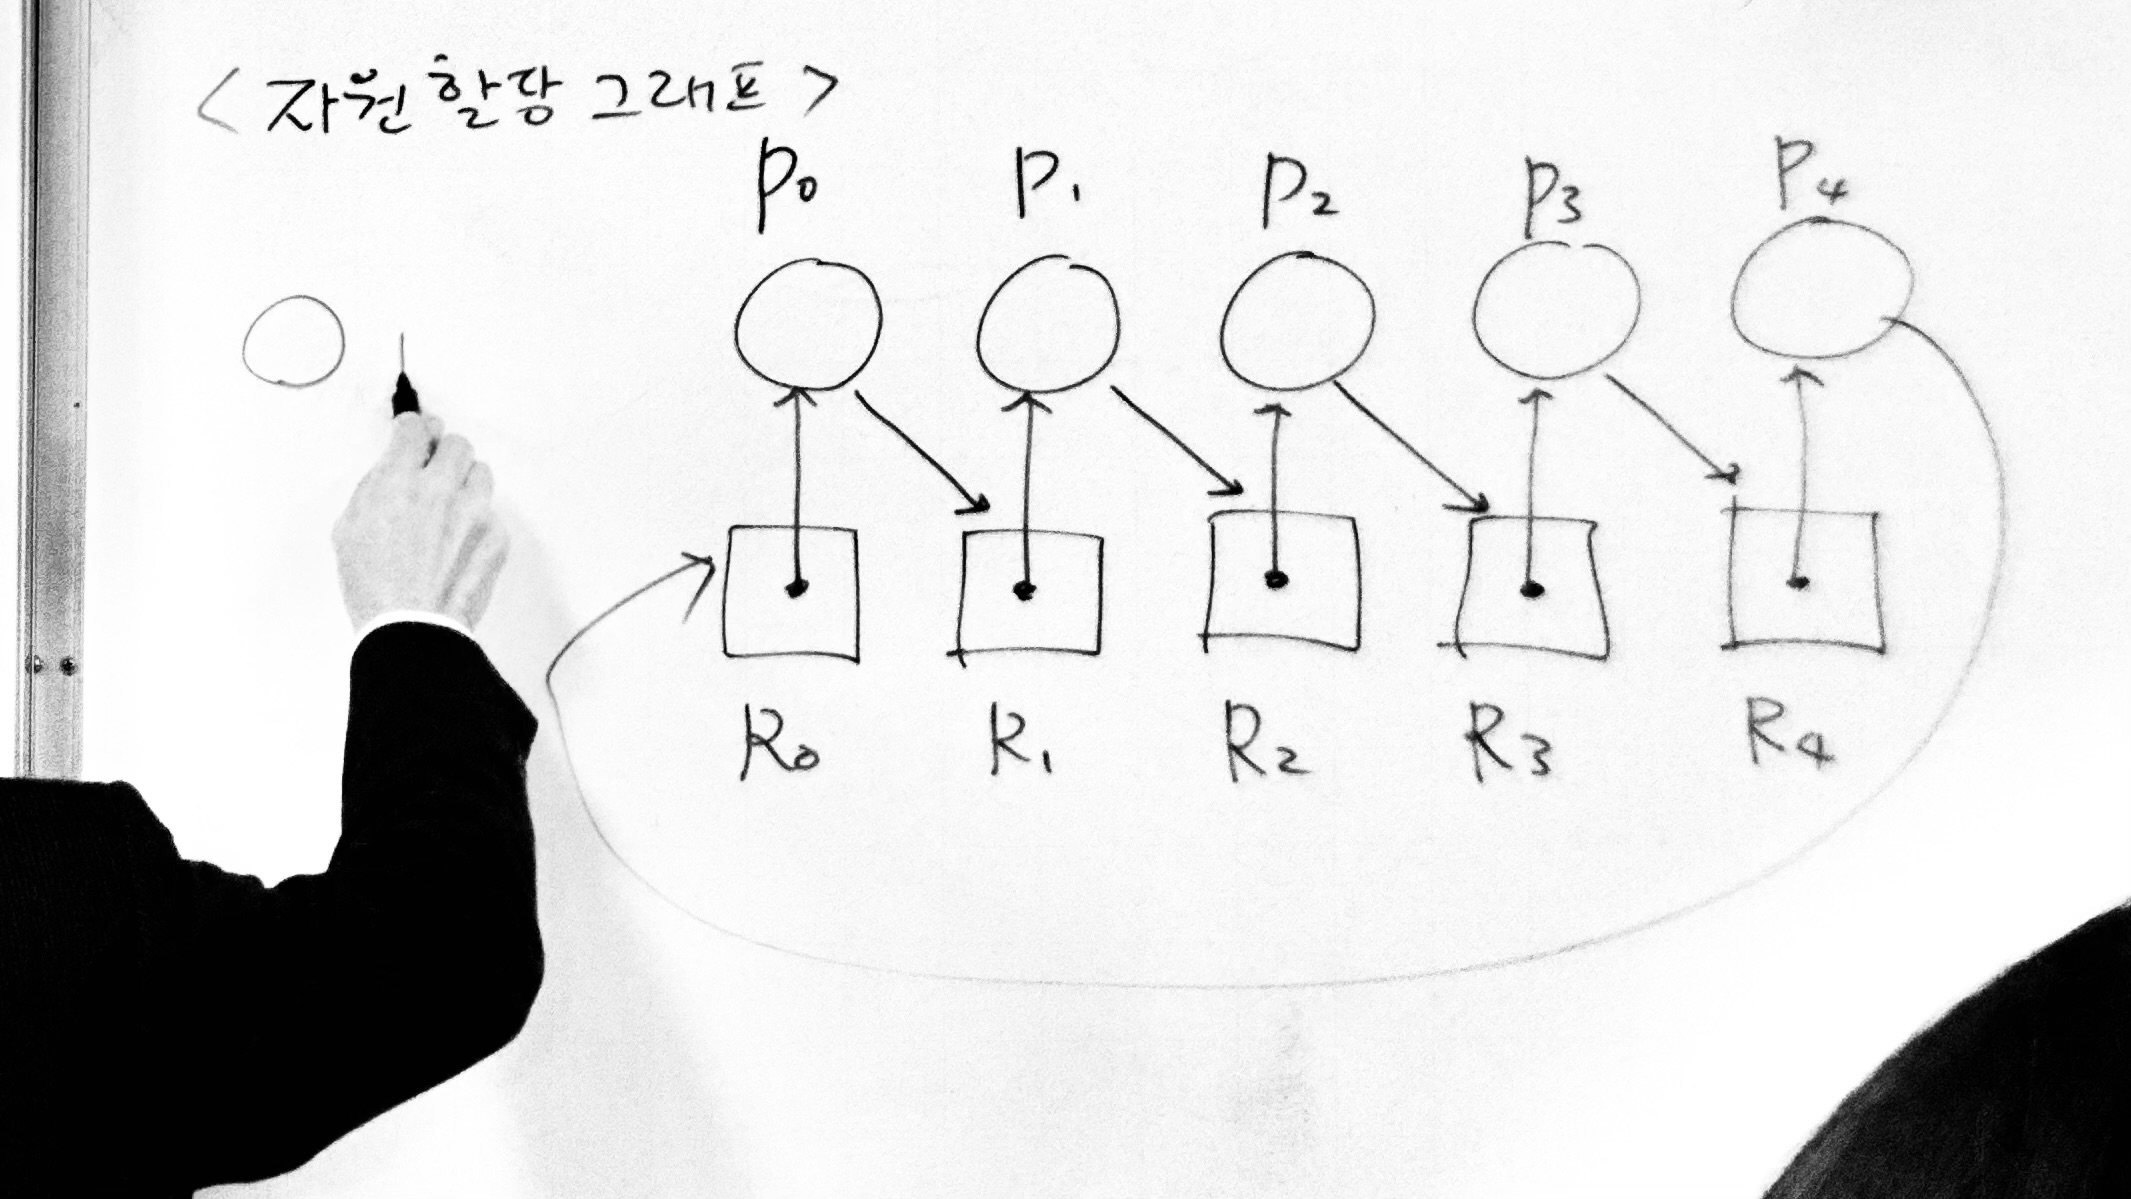 < 자원 할당 그래프 >
P0 P1 P2 P3 P4
R0 R1 R2 R3 R4